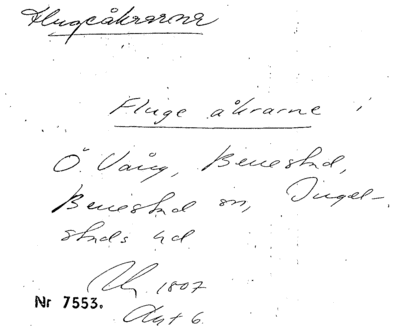 Flugeåkrarne
Fluge åkrarne i
Ö. Vång, Benestad,
Benestad sn, Ingel-
stads hd
1807
Nr 7553.
Akt 6.